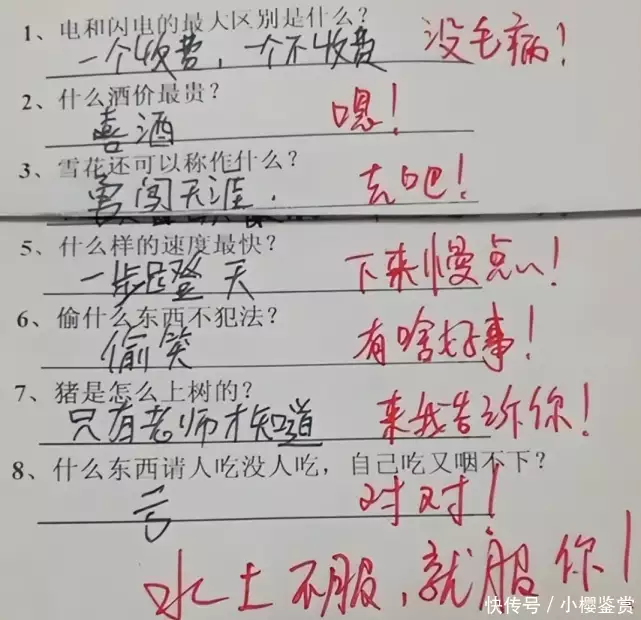 1、电和闪电的最大区别是什么？
一个收费，一个不收费 没毛病！
2、什么酒价最贵？
喜酒 嗯！
3、雪花还可以称作什么？
勇闯天涯. 去吧！
5、什么样的速度最快？
一步登天 下来慢点！
6、偷什么东西不犯法？
偷笑 有啥好事！
7、猪是怎么上树的？
只有老师才知道 来我告诉你！
8、什么东西请人吃没人吃，自己吃又咽不下？
亏 对对！
水土不服，就服你！
快传号／小樱鉴赏